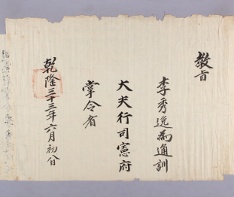 教旨
李秀逸為通訓
大夫行司憲府
掌令者
乾隆三十三年六月初六日